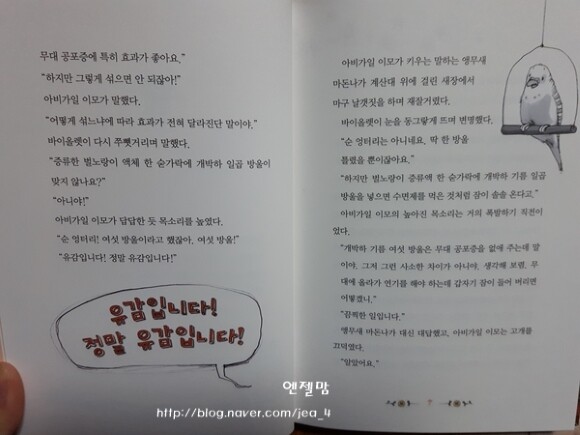 무대 공포증에 특히 효과가 좋아요."
"하지만 그렇게 섞으면 안 되잖아!"
아비가일 이모가 말했다.
"어떻게 섞느냐에 따라 효과가 전혀 달라진단 말이야."
바이올렛이 다시 쭈뼛거리며 말했다.
"증류한 벌노랑이 액체 한 숟가락에 개박하 일곱 방울이
맞지 않나요?"
"아니야!"
아비가일 이모가 답답한 듯 목소리를 높였다.
"순 엉터리! 여섯 방울이라고 했잖아, 여섯 방울!"
"유감입니다! 정말 유감입니다!"
유감입니다!
정말 유감입니다!
아비가일 이모가 키우는 말하는 앵무새
마돈나가 계산대 위에 걸린 새장에서
마구 날갯짓을 하며 재잘거렸다.
바이올렛이 눈을 동그랗게 뜨며 변명했다.
"순 엉터리는 아니네요. 딱 한 방울
틀렸을 뿐이잖아요."
"하지만 벌노랑이 증류액 한 숟가락에 개박하 기름 일곱
방울을 넣으면 수면제를 먹은 것처럼 잠이 솔솔 온다고."
아비가일 이모의 높아진 목소리는 거의 폭발하기 직전이
었다.
"개박하 기름 여섯 방울은 무대 공포증을 없애 주는데 말
이야. 그저 그런 사소한 차이가 아니야. 생각해 보렴. 무
대에 올라가 연기를 해야 하는데 갑자기 잠이 들어 버리면
어떻겠니."
"끔찍한 일입니다."
앵무새 마돈나가 대신 대답했고, 아비가일 이모는 고개를
끄덕였다.
"알았어요."
7
엔젤맘
http://blog.naver.com/jea_4